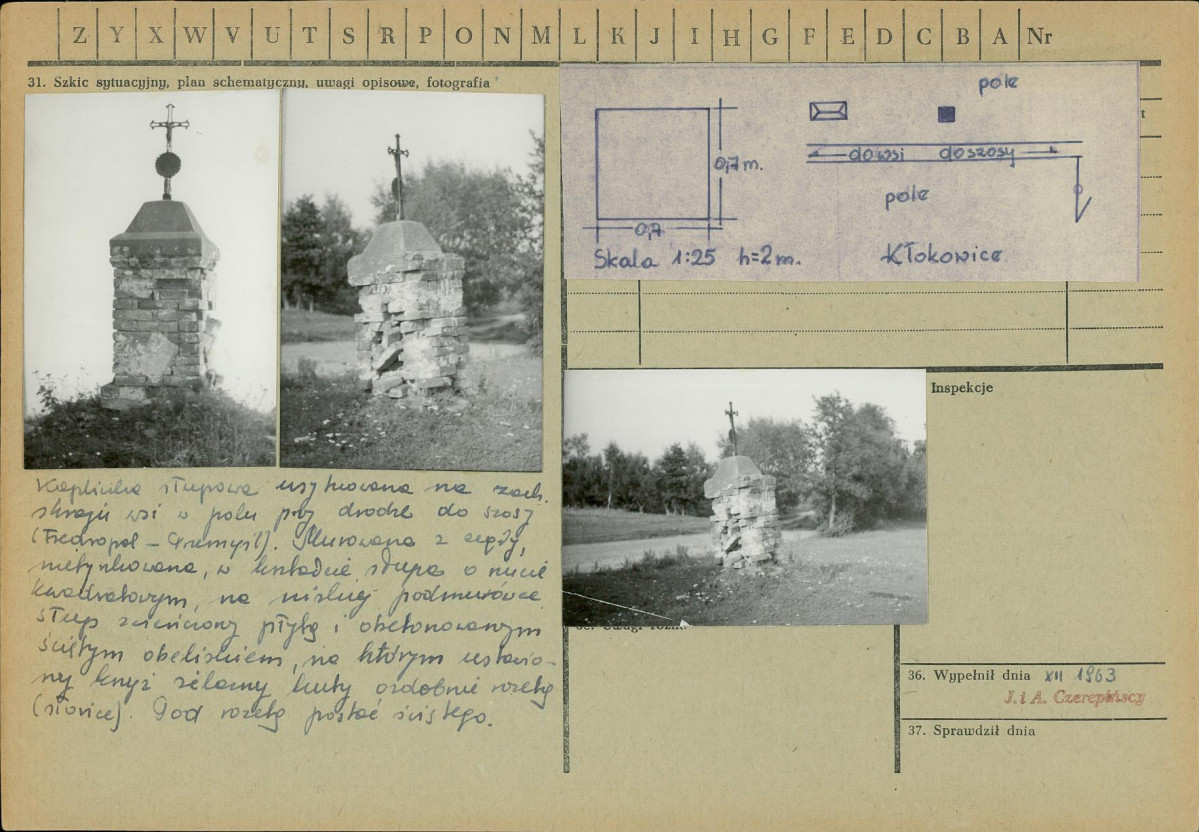 Z Y X W V U T S R P O N M L K J I H G F E D C B A Nr
31. Szkic sytuacyjny, plan schematyczny, uwagi opisowe, fotografia
pole
0,7 m.
do wsi do szosy
pole
0,7
Skala 1:25 h=2m.
Kłokowice
Inspekcje
Kapliczka słupowa usytuowana na zach.
skraju wsi w polu przy drodze do szosy
(Fredropol – Przemyśl). Murowana z cegły,
nietynkowana, w kształcie słupa o rzucie
kwadratowym, na niskiej podmurówce.
Słup zwieńczony płytą i obetonowanym
ściętym obeliskiem, na którym ustawio-
ny krzyż żelazny kuty ozdobnie rozetą
(słońce). Pod rozetą postać świętego.
36. Wypełnił dnia XII 1963
J. i A. Czerepińscy
37. Sprawdził dnia